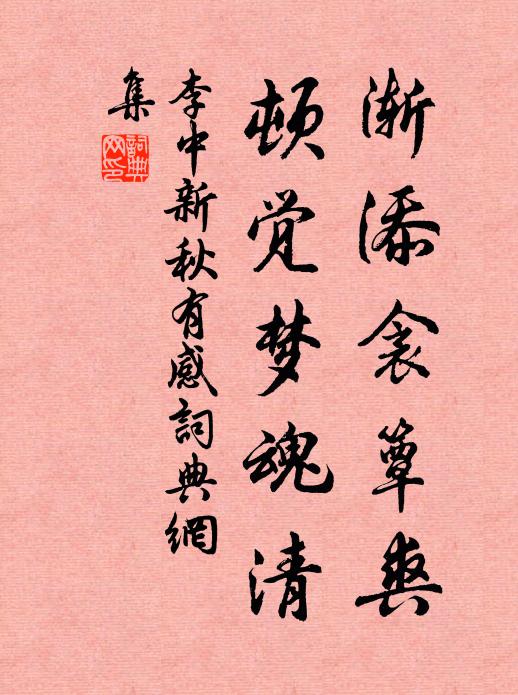 渐添衾簟爽
顿觉梦魂清
李中新秋有感詞典網
集
詞典网印